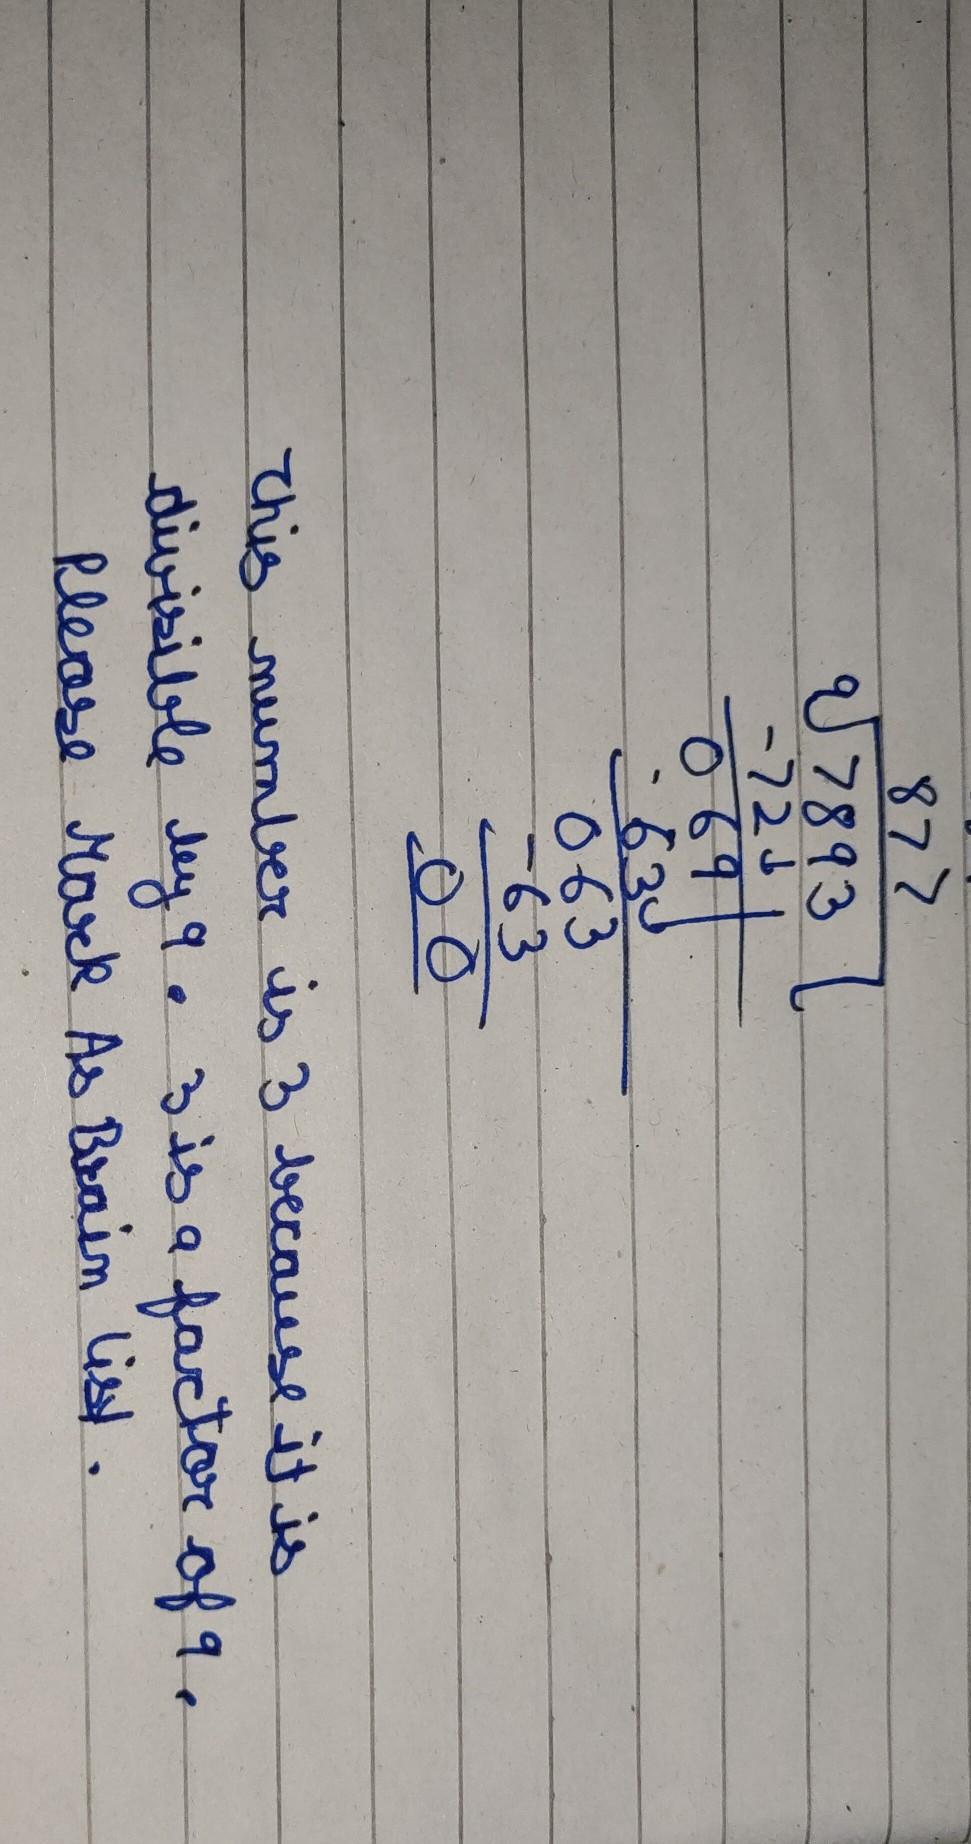 877
9√7893
-72↓
069
-63↓
063
-63
00
This number is 3 because it is
divisible by 9. 3 is a factor of 9.
Please Mark As Brain list.